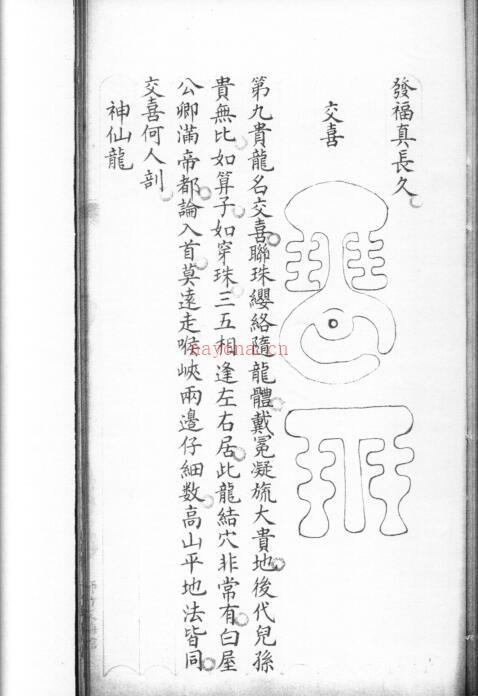 發福真長久
交喜
第九貴龍名交喜聯珠纓絡隨龍體戴冕凝旒大貴地後代兒孫
貴無比如算子如穿珠三五相逢左右居此龍結穴非常有白屋
公卿滿帝都論入首莫遠走喉峽兩邊仔細數高山平地法皆同
交喜何人剖
神仙龍
nayona.cn